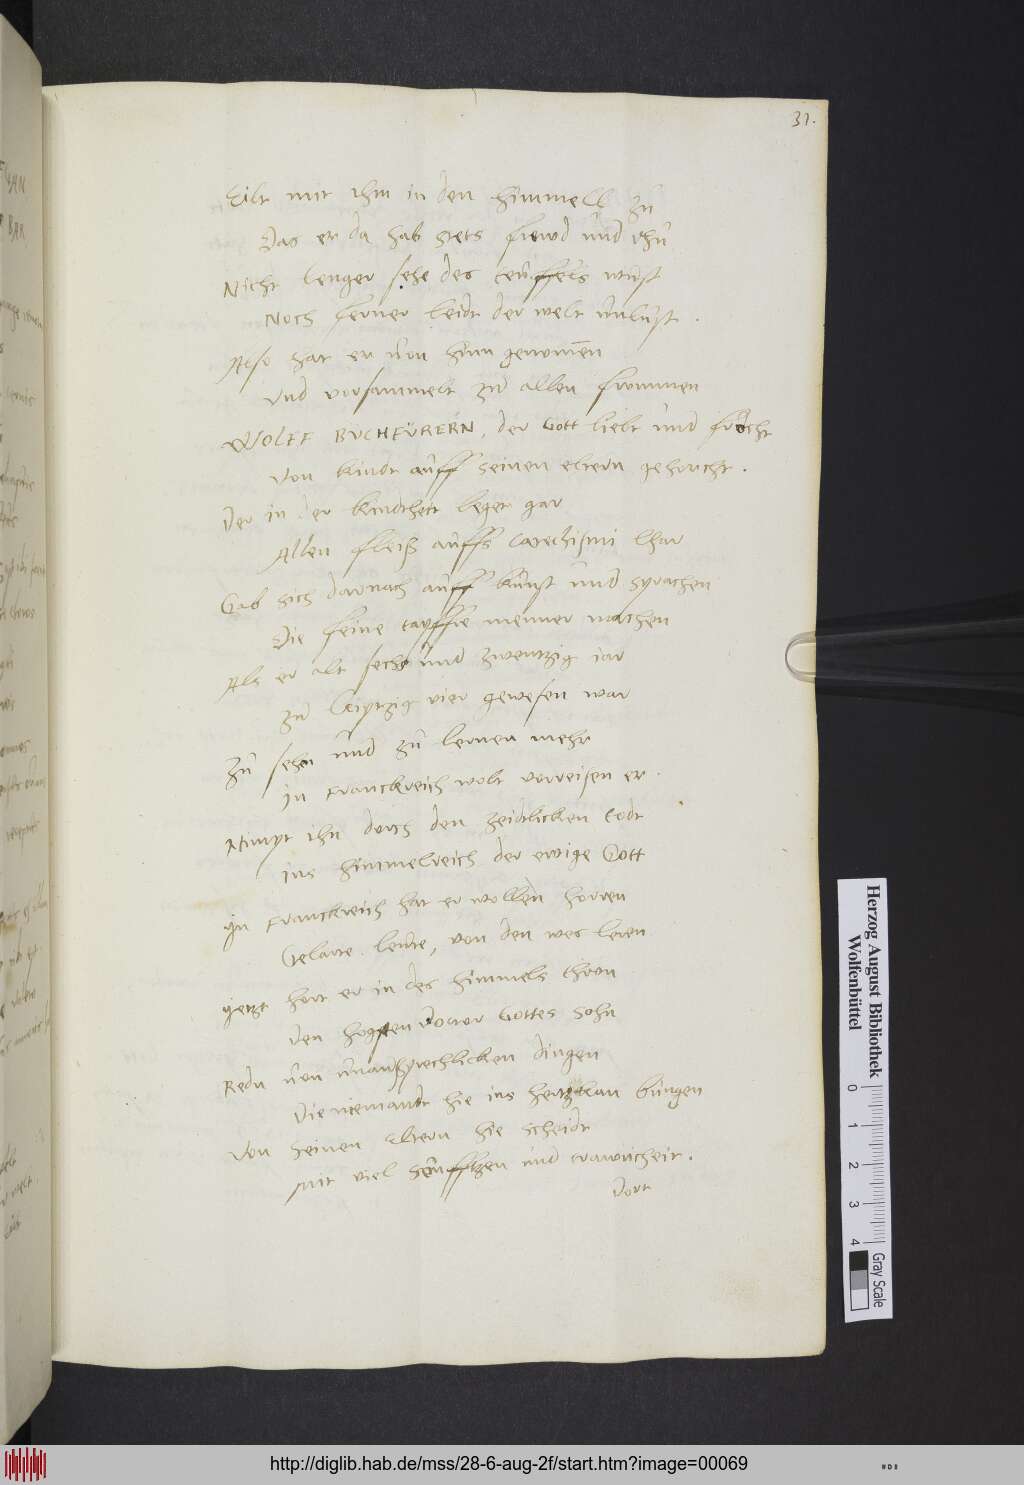 31.
Eilt mit ihm in den himmell zu
Das er da hab stets frewd und rhu
Nicht lenger sehe des teuffels wust
Noch ferner leide der welt unlust.
Also hat er von hinn genomen
Und versammelt zu allen frommen
WOLFF BUCHFURERN, der Gott liebt und frocht
Von kindt auff seinen eltern gehorcht.
Der in der kindtheit leget gar
Allen fleiß auffs Catechismi lhar
Gab sich darnach auff kunst und sprachen
Die feine tapffre menner machen
Als er alt sechs und zwentzig iar
Zu Leiptzig vier gewesen war
Zu sehn und zu lernen mehr
In Franckreich wolt vorreisen er.
Nimpt ihn durch den zeidtlicken todt
Ins himmelreich der ewige Gott
In Franckreich hat er wollen horren
Gelarte leute, von den was leren
Jetzt hort er in des himmels thron
Den hogsten Doctor Gottes Sohn
Redn von unaußsprechlicken dingen
Die niemandt hie ins hertz kan bringen
Von seinen Eltern hie scheidt
Mit viel seufftzen und trawricheit.
Dort
Herzog August Bibliothek
Wolfenbüttel
0 1 2 3 4
Gray Scale
http://diglib.hab.de/mss/28-6-aug-2f/start.htm?image=00069